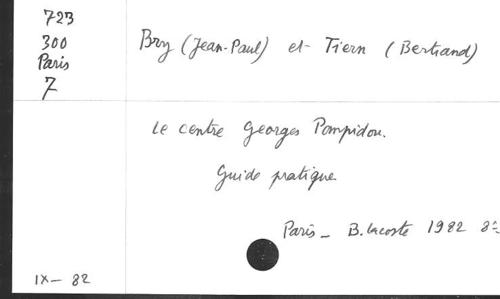 723
300
Paris
7
Bry (Jean-Paul) et Tiern (Bertrand)
Le centre Georges Pompidou.
Guide pratique
Paris - B. Lacoste 1982 8°
IX - 82